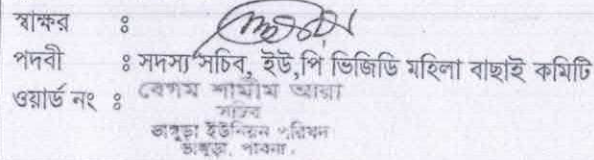 স্বাক্ষর :
পদবী : সদস্য সচিব, ইউ,পি ভিজিডি মহিলা বাছাই কমিটি
ওয়ার্ড নং : বেগম শামীম আরা
সচিব
ভাঙ্গুড়া ইউনিয়ন পরিষদ
ভাঙ্গুড়া, পাবনা।